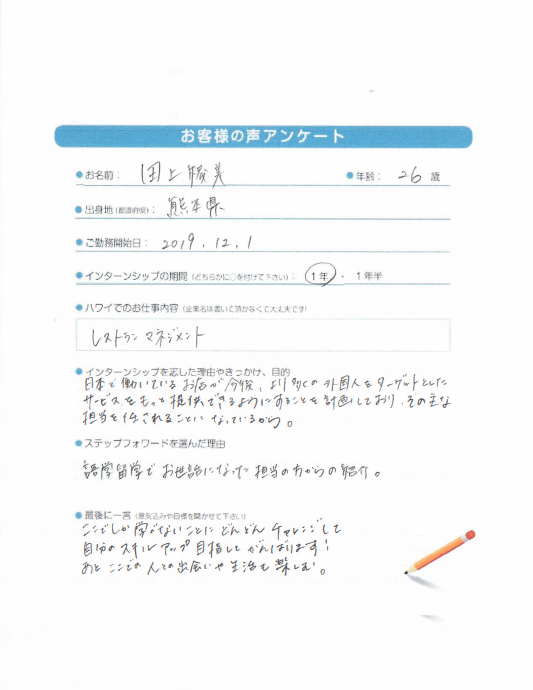 お客様の声アンケート
●お名前: 国上 綾美 ●年齢: 26 歳
●出身地(都道府県): 熊本県
●ご勤務開始日: 2019.12.1
●インターンシップの期間(どちらかに○を付けて下さい): 1年 ・ 1年半
●ハワイでのお仕事内容(企業名は書いて頂かなくて大丈夫です)
レストラン マネジメント
●インターンシップを志した理由やきっかけ、目的
日本で働いているお店が今後、より多くの外国人をターゲットとした
サービスをもっと提供できるようにすることを計画しており、その主な
担当を任されることになっているから。
●ステップフォワードを選んだ理由
語学留学でお世話になった担当の方からの紹介。
●最後に一言(意気込みや目標を聞かせて下さい)
ここでしか学べないことにどんどんチャレンジして
自分のスキルアップ目指してがんばります!
あと ここでの人との出会いや生活も楽しむ。